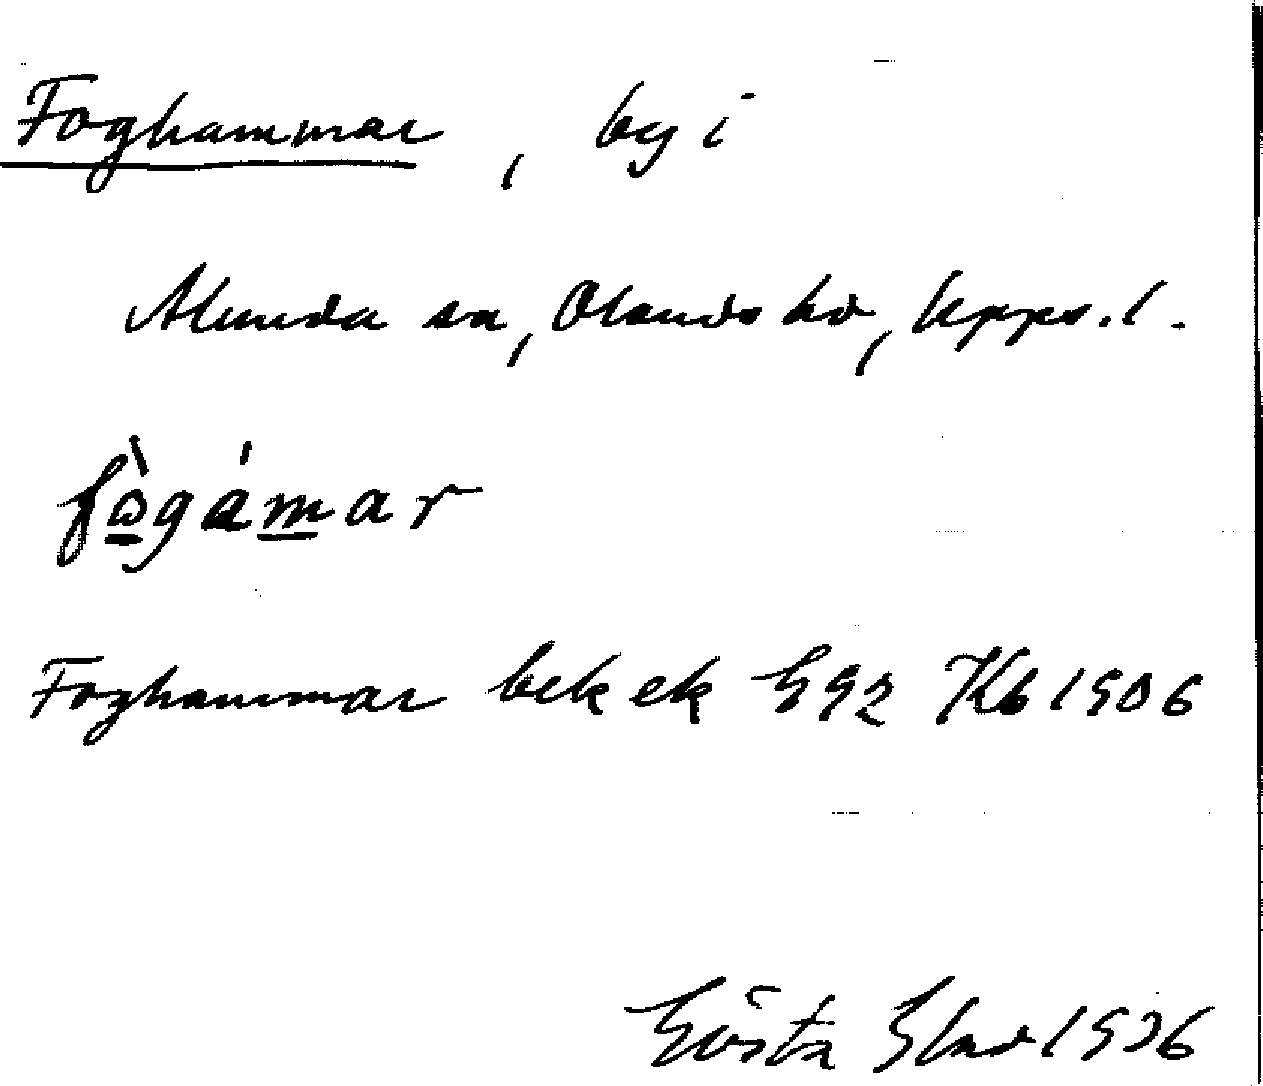 Foghammar, by i
Alunda sn, Olands hd, Upps. l.
fògámar
Foghammar bek ek G92 Kb 1906
Gösta Glad 1936